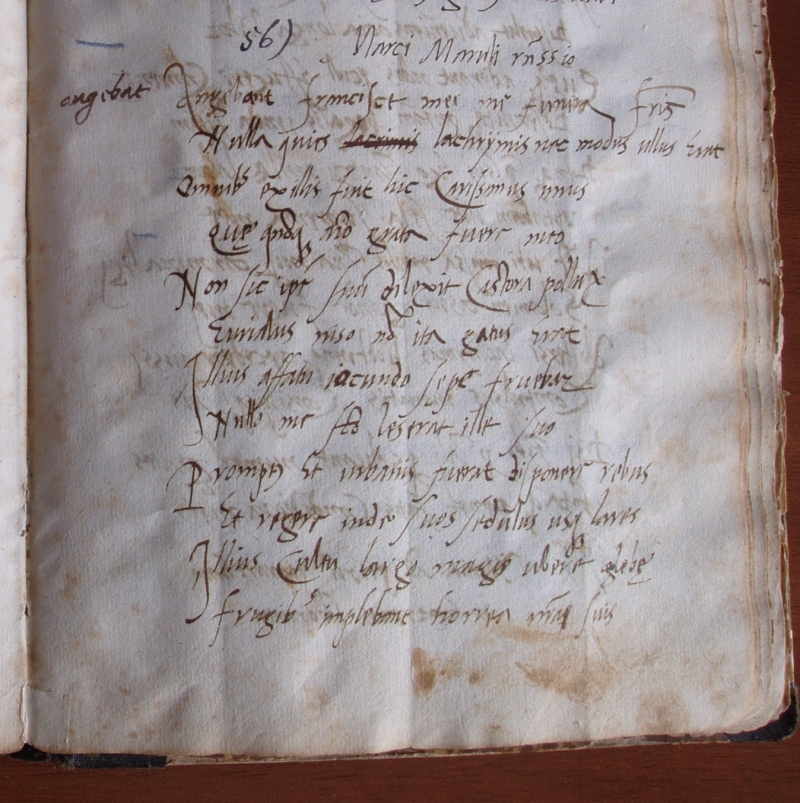 56) Marci Manili rñssio
angebat Angebant francisce mee me funera frĩs
Nulla quies lacrimis lachrymis nec modus ullus erat
Omnibꝰ ex illis fuit hic Carissimus unus
Quę
grata fuere meo
Non sic ipẽ suũ dilexit Castora pollux
Eurialus niso nõ ita gratus erat
Illius affatu iocundo sepe fruebar
Nullo me fcõ leserat ille suo
Et urbanis fuerat disponere rebus
Et regere inde suos sedulus usq lares
Illius Cultu largo magis ubere glebę
frugibꝰ implebant horrea suis